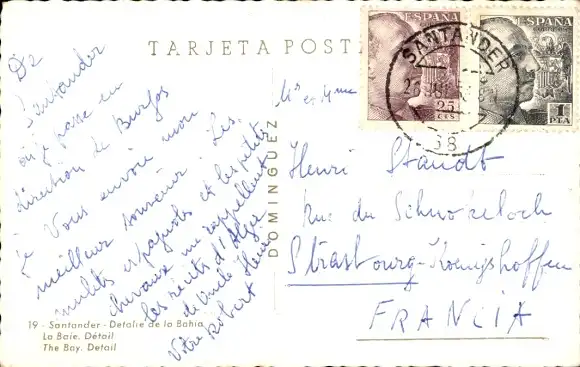 TARJETA POSTA
De
Santander
où je passe en
direction de Burgos
je vous envoie mon
meilleur souvenir. Les
mulets espagnols et les petits
chevaux me rappellent
les récits d'Alger
de l'oncle Henri
Votre Robert
19 - Santander - Detalle de la Bahia
La Baie. Détail
The Bay. Detail
DOMINGUEZ
ESPAÑA
25
CTS
ESPAÑA
1
PTA
SANTANDER
Mr et Mme
Henri Staudt
Rue du Schnokeloch
Strasbourg-Koenigshoffen
FRANCIA